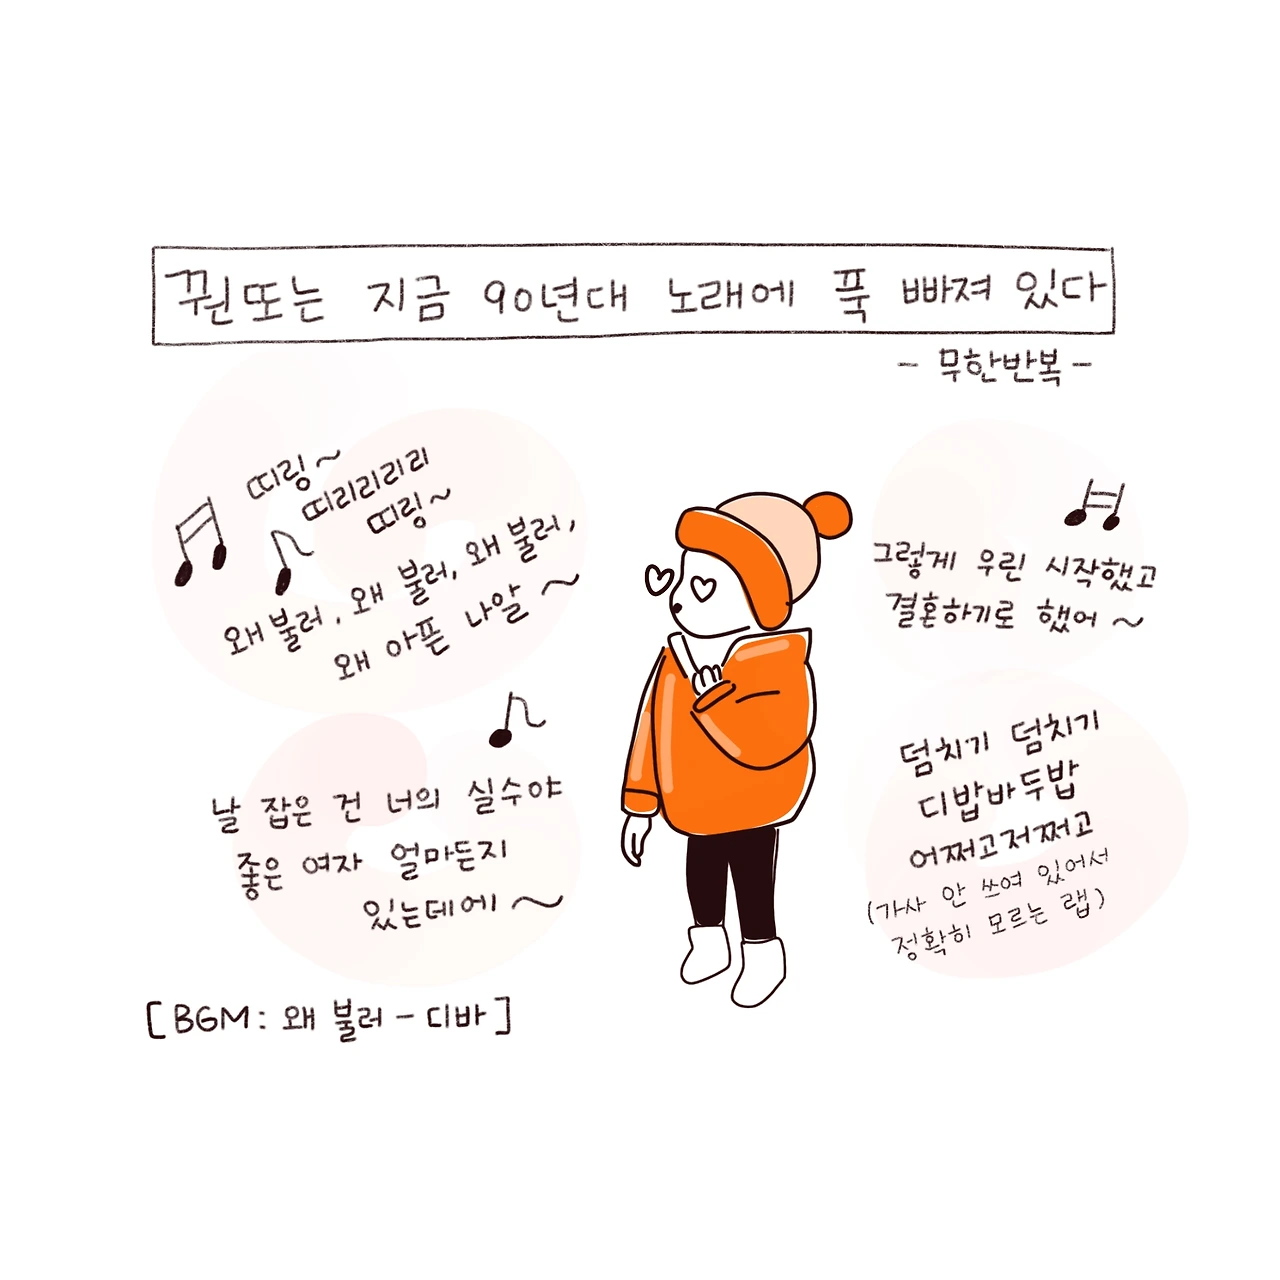 꿘또는 지금 90년대 노래에 푹 빠져 있다
- 무한반복 -
띠링~
띠리리리리
띠링~
왜 불러, 왜 불러, 왜 불러,
왜 아픈 나알 ~
날 잡은 건 너의 실수야
좋은 여자 얼마든지
있는데에 ~
그렇게 우린 시작했고
결혼하기로 했어 ~
덤치기 덤치기
디밥바두밥
어쩌고저쩌고
(가사 안 쓰여 있어서
정확히 모르는 랩)
[BGM: 왜 불러 - 디바]